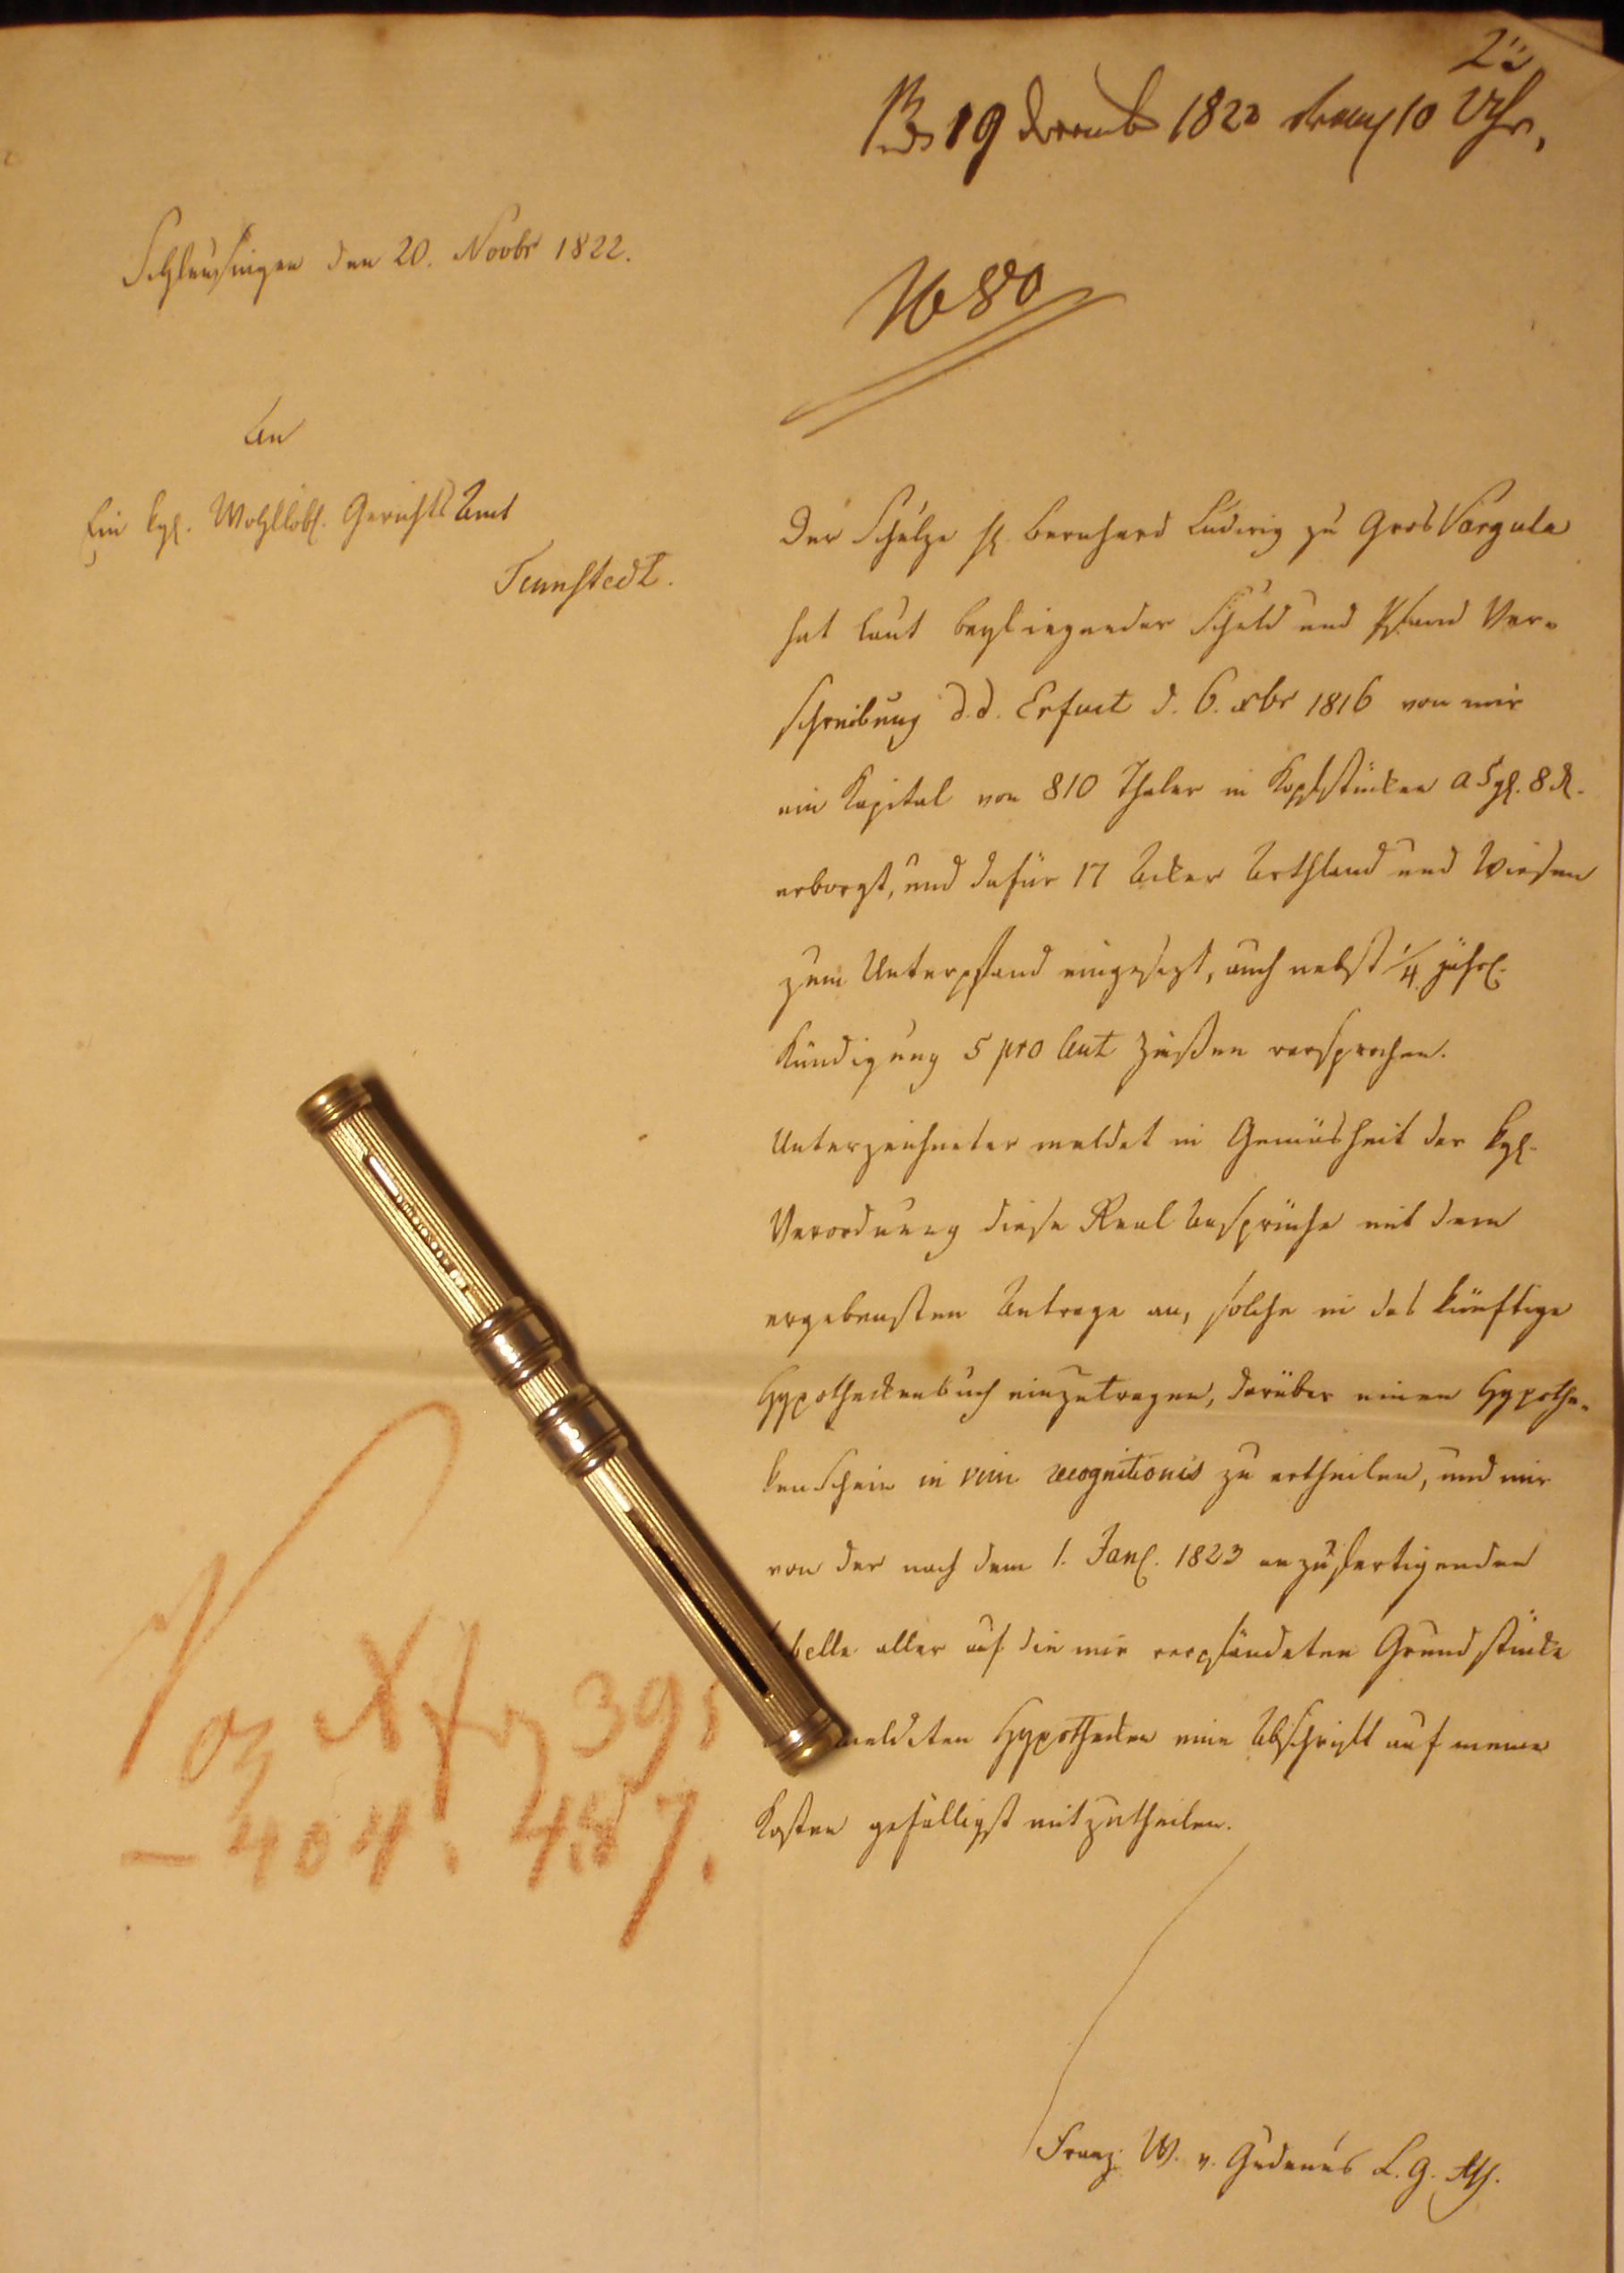 19 Decemb 1822 10 Uhr,
Schleusingen den 20. Novbr 1822.
1680
An
Ein kgl. Wohllöbl. Gerichts Amt
Tennstedt.
Der Schulze H. Bernhard Ludwig zu Gros Vargula
hat laut beyliegender Schuld und Pfand Ver-
schreibung d.d. Erfurt d. 6. xbr 1816 von mir
ein Kapital von 810 Thaler in Kopfstücken a 5 gl. 8 d.
erborgt, und dafür 17 Acker Arthland und Wiesen
zum Unterpfand eingesezt, auch nebst 1/4 jährl.
Kündigung 5 pro Cent Zinßen versprochen.
Unterzeichneter meldet in Gemäsheit der kgl.
Verordnung diese Real Ansprüche mit dem
ergebensten Antrage an, solche in das künftige
Hypotheckenbuch einzutragen, darüber einen Hypothe-
kenschein in vim recognitionis zu ertheilen, und mir
von der nach dem 1. Jan. 1823 anzufertigenden
belle aller auf die mir verpfändeten Grundstücke
meldeten Hypothecken eine Abschrift auf meine
Kosten gefälligst mitzutheilen.
395
- 404. 457.
Franz W. v. Gudenus L. G.